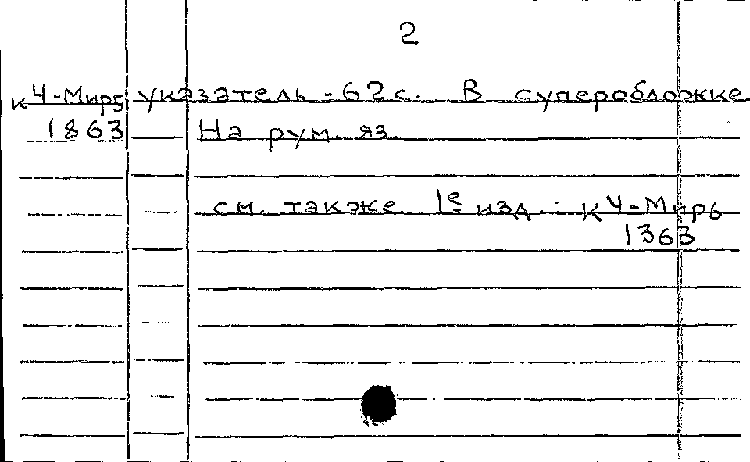 2
к Ч-Мирь указатель - 62 с. В суперобложке
1863 На рум. яз.
см. также 1е изд. : к Ч-Мирь
1363